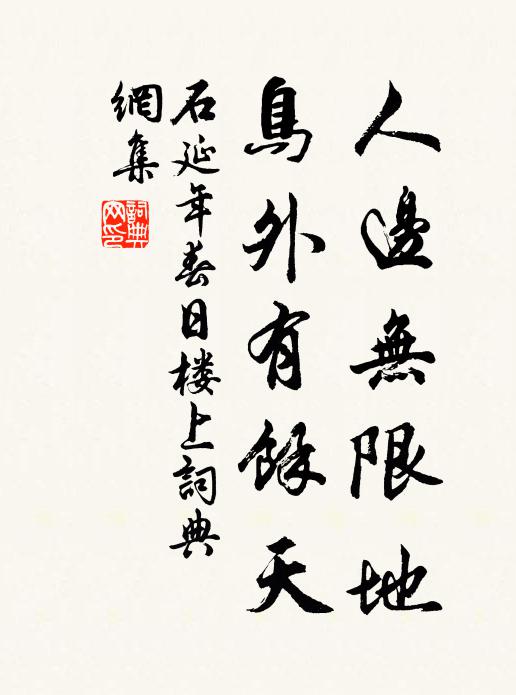 人邊無限地
鳥外有餘天
石延年春日楼上詞典
網集
詞典
网印